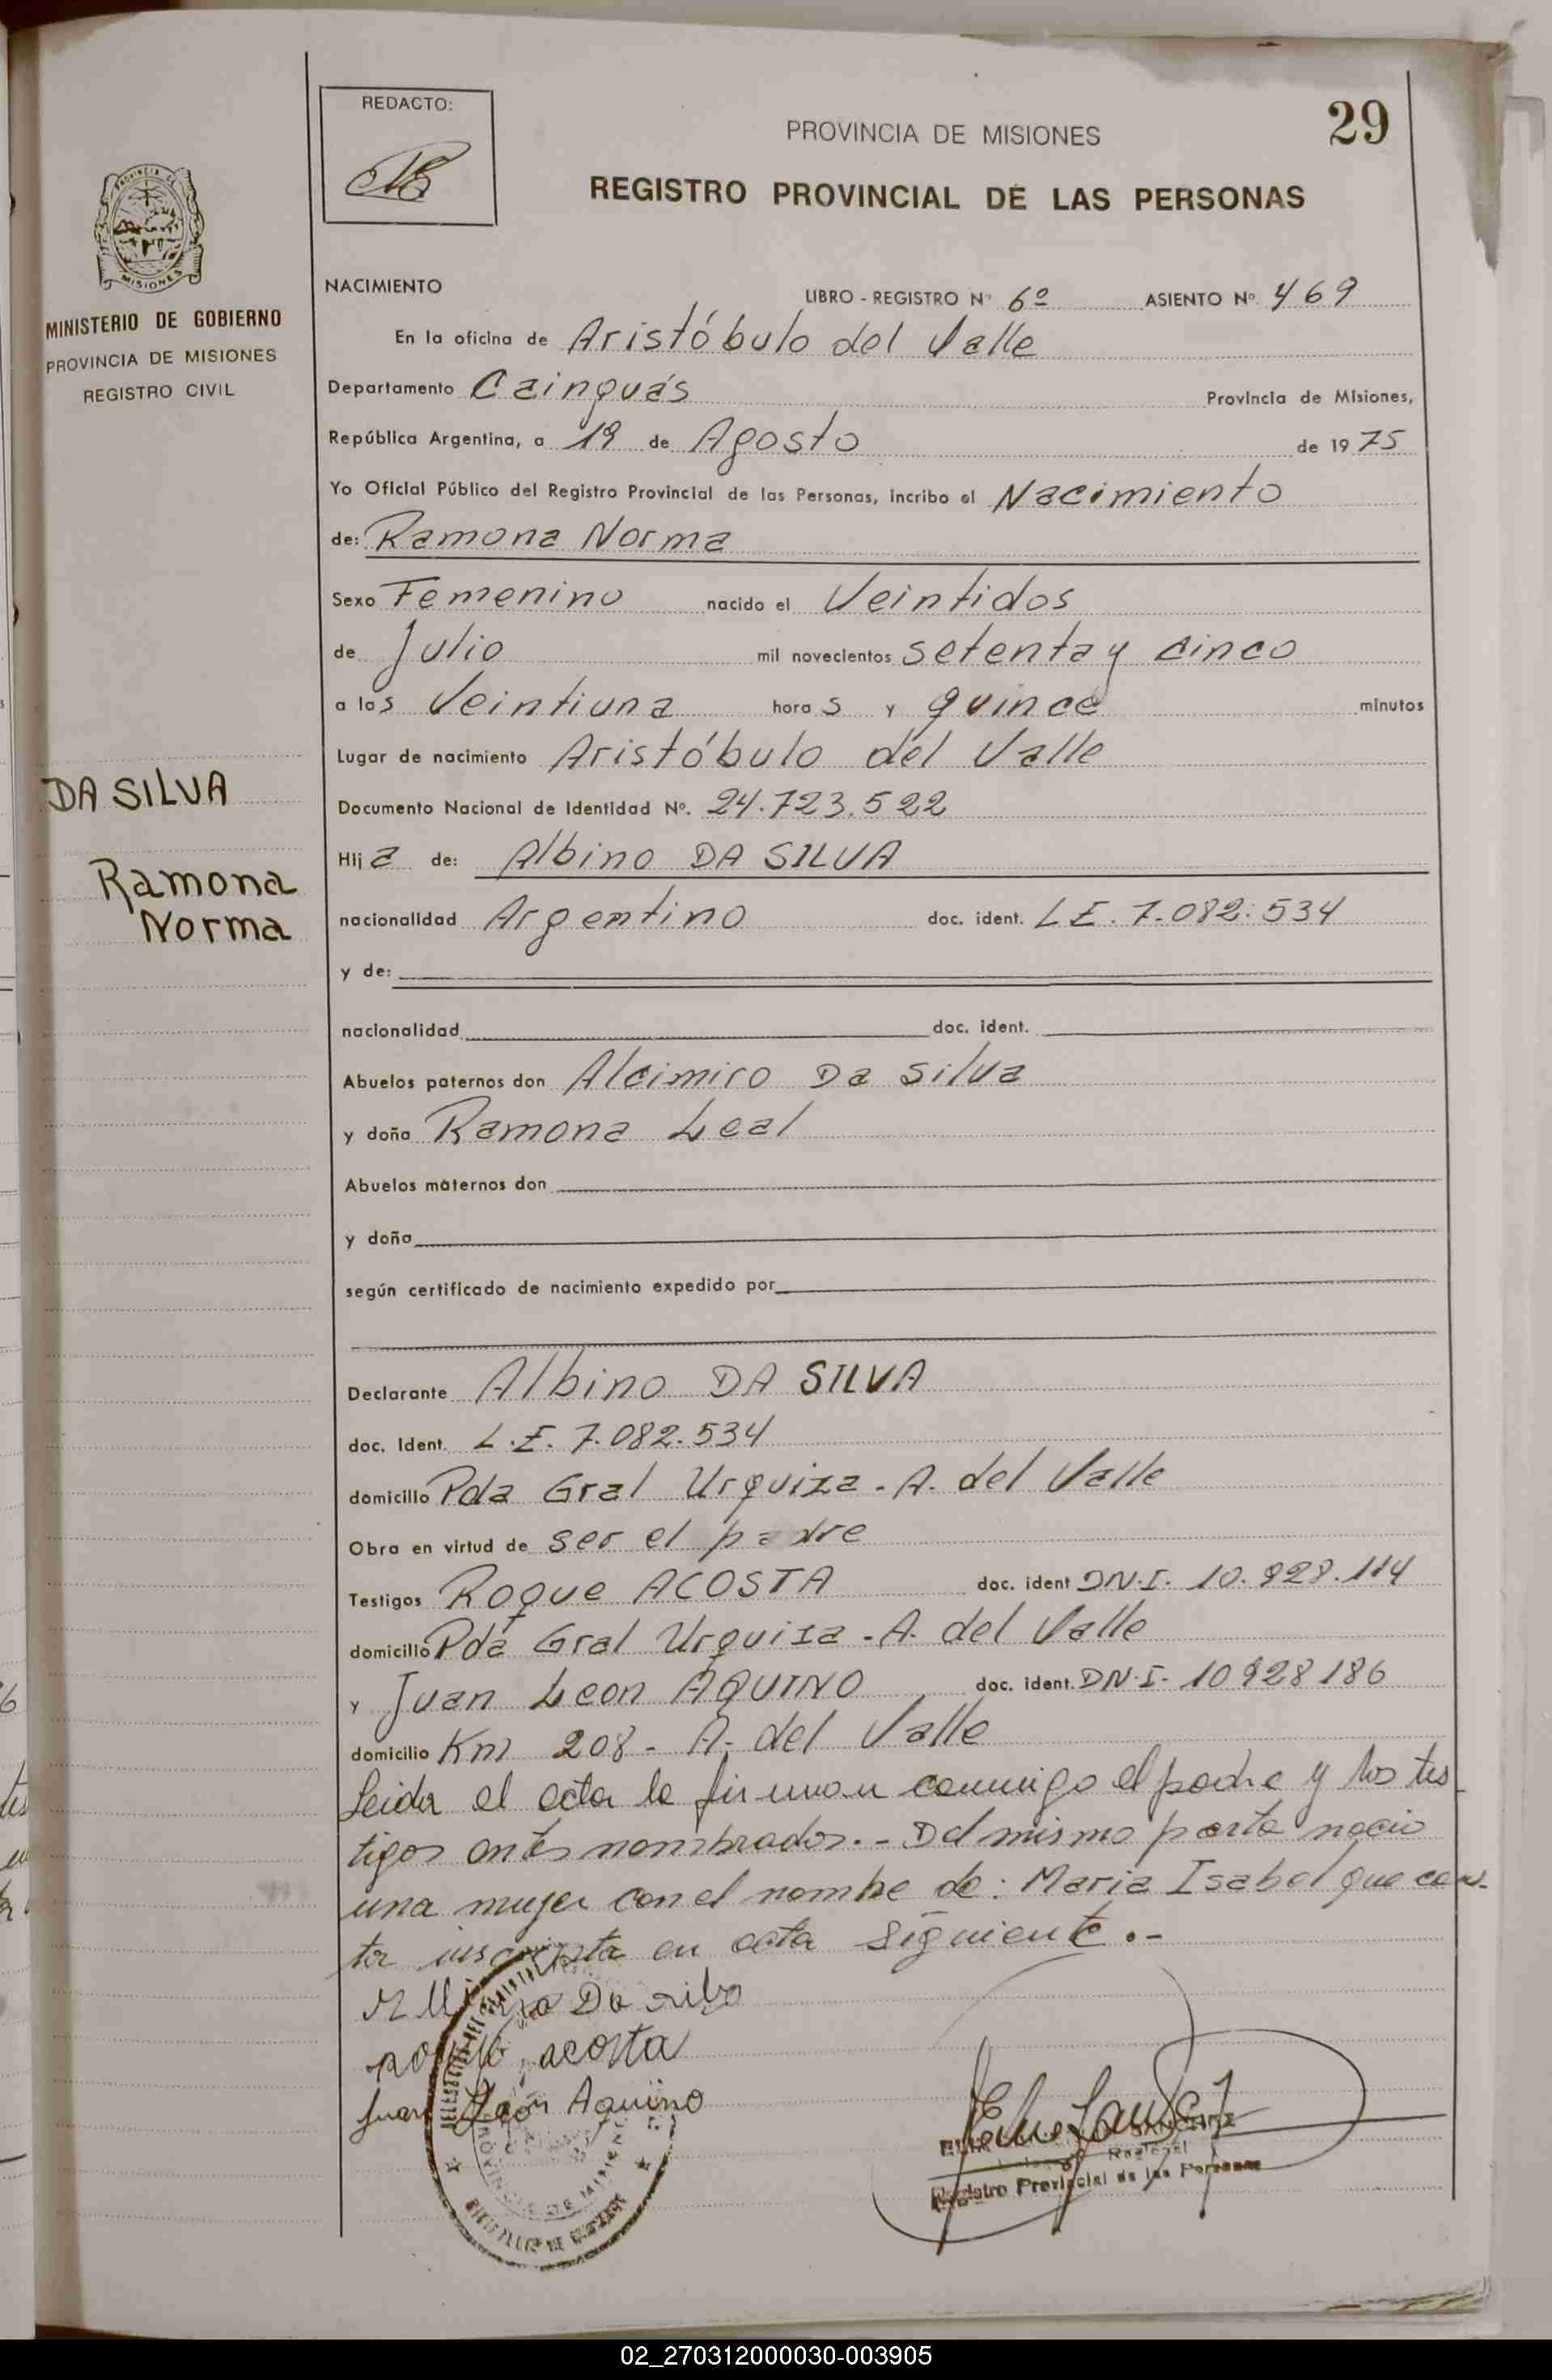 REDACTO:
29
PROVINCIA DE MISIONES
REGISTRO PROVINCIAL DE LAS PERSONAS
PROVINCIA DE
MISIONES
MINISTERIO DE GOBIERNO
PROVINCIA DE MISIONES
REGISTRO CIVIL
NACIMIENTO
LIBRO - REGISTRO Nº 6º ASIENTO Nº 469
En la oficina de Aristóbulo del Valle
Departamento Cainguás Provincia de Misiones,
República Argentina, a 19 de Agosto de 1975
Yo Oficial Público del Registro Provincial de las Personas, incribo el Nacimiento
de: Ramona Norma
Sexo Femenino nacido el Veintidos
de Julio mil novecientos setenta y cinco
a las Veintiuna horas y quince minutos
Lugar de nacimiento Aristóbulo del Valle
DA SILVA
Documento Nacional de Identidad Nº. 24.723.522
Hija de: Albino DA SILVA
Ramona
Norma
nacionalidad Argentino doc. ident. LE. 7.082.534
y de:
nacionalidad doc. ident.
Abuelos paternos don Alcimiro Da Silva
y doña Ramona Leal
Abuelos maternos don
y doña
según certificado de nacimiento expedido por
Declarante Albino DA SILVA
doc. Ident. L.E. 7.082.534
domicilio Pda Gral Urquiza - A. del Valle
Obra en virtud de ser el padre
Testigos Roque ACOSTA doc. ident DN.I. 10.928.114
domicilio Pda Gral Urquiza - A. del Valle
y Juan Leon AQUINO doc. ident. DN.I- 10928186
domicilio Km 208 - A. del Valle
Leida el acta la firman conmigo el padre y los tes
tigos antes nombrados.- Del mismo parto nacio
una mujer con el nombre de: Maria Isabel que cons-
ta inscripta en acta siguiente.-
Da silva
acosta
Juan León Aquino
PROVINCIA DE MISIONES
Registro Provincial de las Personas
02_270312000030-003905